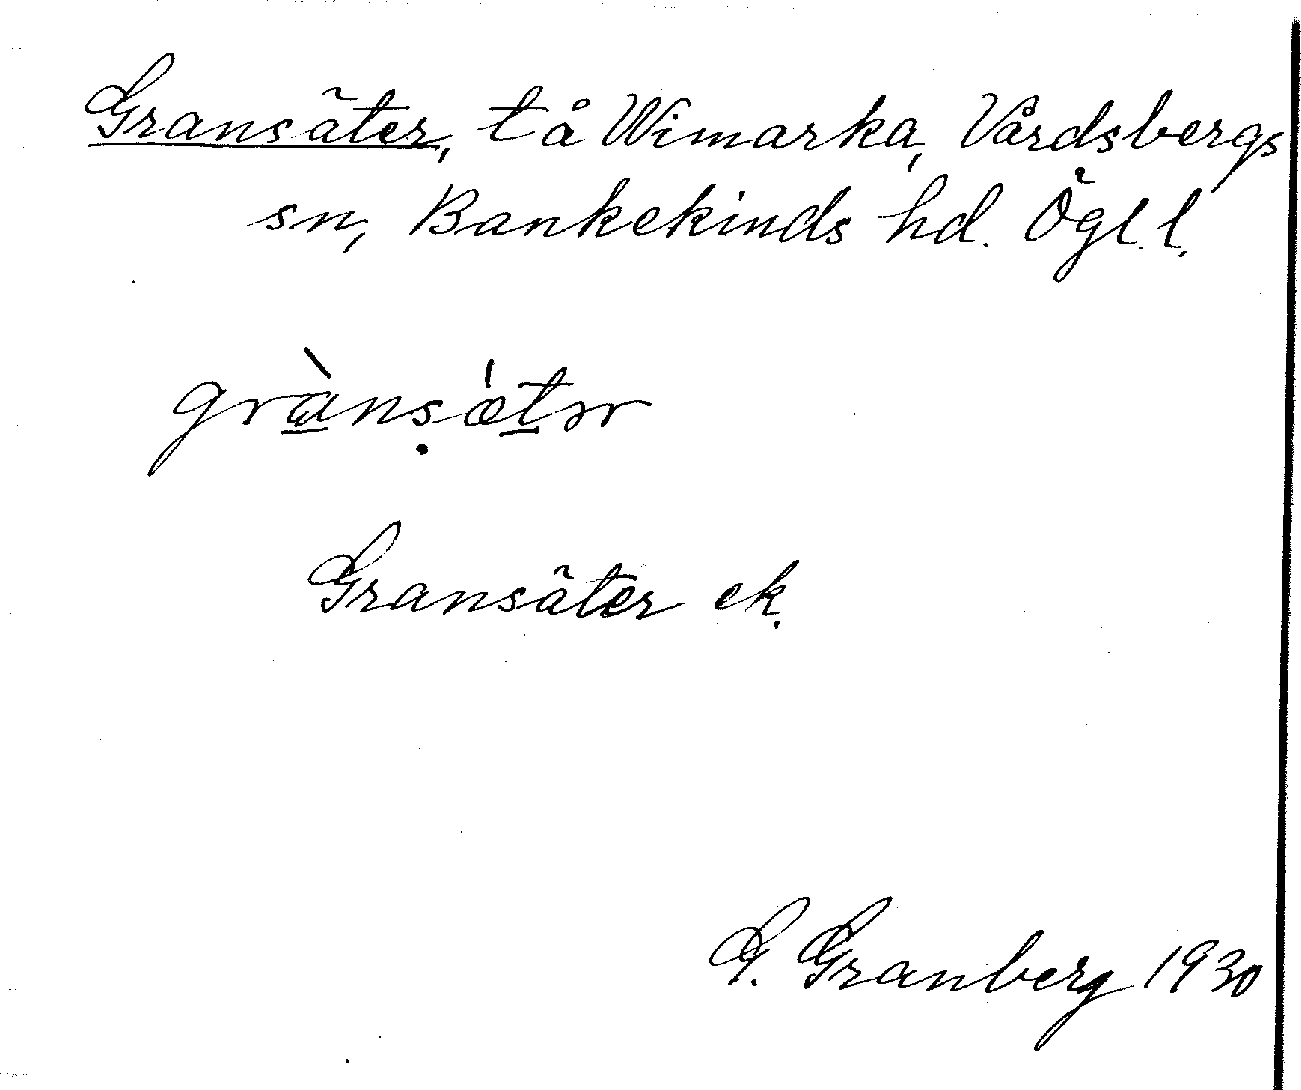 Gransäter, t å Wimarka, Vårdsbergs
sn, Bankekinds hd. Ögl. l.
grànsætər
Gransäter ek.
G. Granberg 1930